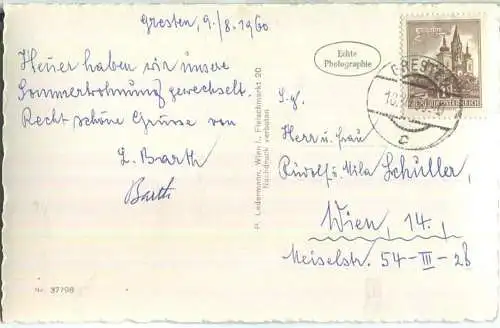 Gresten, 9./8.1960
Heuer haben wir unsere
Sommerwohnung gewechselt.
Recht schöne Grüsse von
L. Barth
Barth
Nr. 37798
P. Ledermann, Wien I., Fleischmarkt 20
Nachdruck verboten
Echte
Photographie
GRESTEN
REPUBLIK ÖSTERREICH
c
S.g.
Herrn u. Frau
Rudolf u. Mila Schüller,
Wien, 14.,
Meiselstr. 54-III-26